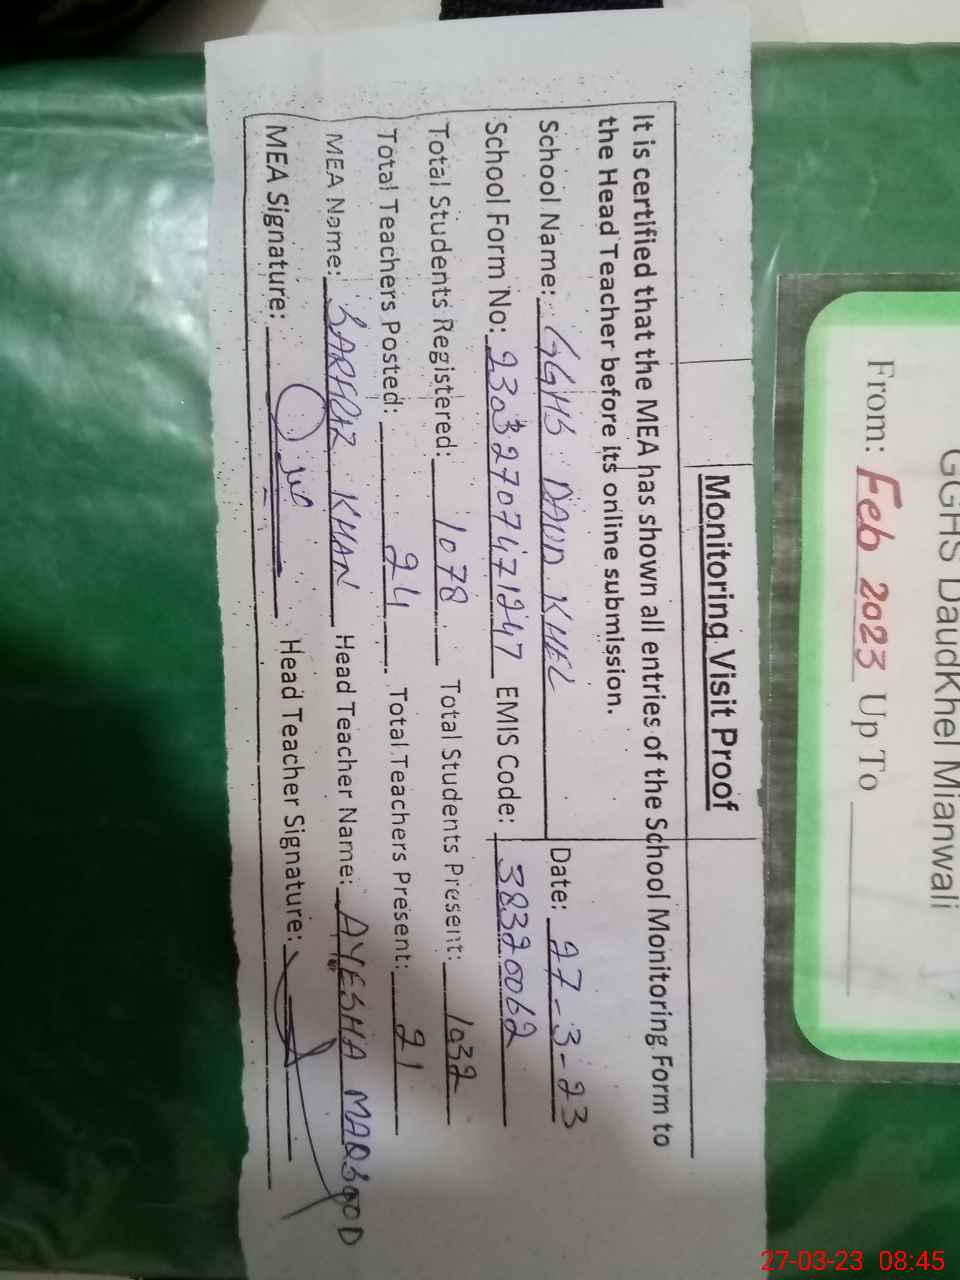 GGHS DaudKhel Mianwali
From: Feb 2023 Up To
Monitoring Visit Proof
It is certified that the MEA has shown all entries of the School Monitoring Form to
the Head Teacher before its online submission.
School Name: GGHS DAUD KHEL Date: 27-3-23
School Form No: EMIS Code: 38320062
Total Students Registered: 1078 Total Students Present: 1032
Total Teachers Posted: 24 Total Teachers Present: 21
MEA Name: SARFRAZ KHAN Head Teacher Name: AYESHA MAQSOOD
MEA Signature: Head Teacher Signature:
27-03-23 08:45